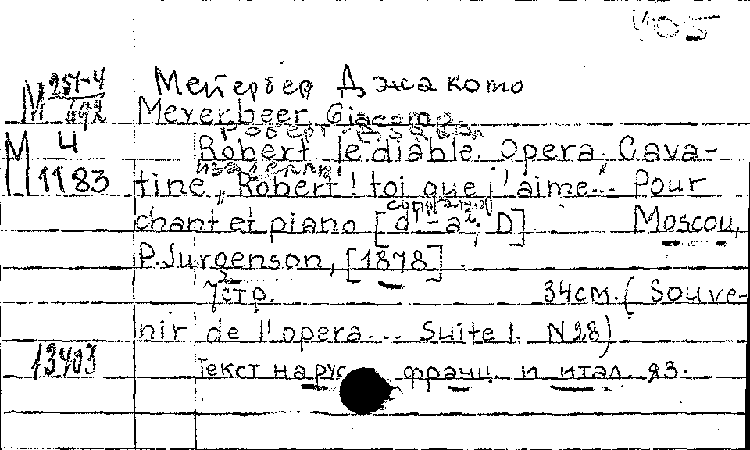 405
M 251-4
492
Мейербер Джакомо
Meyerbeer Giacomo.
M 4
1183
Роберт дьявол
Robert le diable. Opera. Cava-
tine „Robert! toi que j'aime... Pour
chant et piano [d¹-a²; D] Moscou,
P. Jurgenson, [1878]
7 стр. 34 см. (Souve-
nir de l'opera... Suite 1. N 28)
13403
Текст на рус франц и итал. яз.